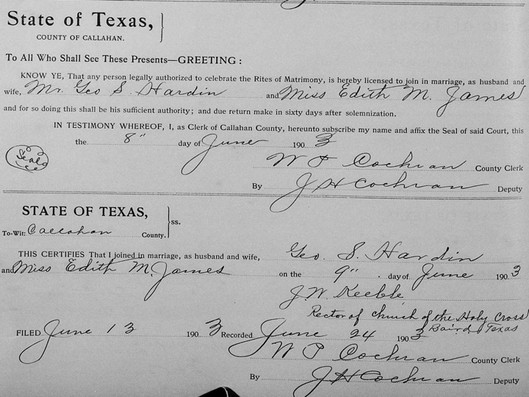 State of Texas,
COUNTY OF CALLAHAN.
To All Who Shall See These Presents—GREETING:
KNOW YE, That any person legally authorized to celebrate the Rites of Matrimony, is hereby licensed to join in marriage, as husband and
wife, Mr. Geo S. Hardin and Miss Edith M. James
and for so doing this shall be his sufficient authority; and due return make in sixty days after solemnization.
IN TESTIMONY WHEREOF, I, as Clerk of Callahan County, hereunto subscribe my name and affix the Seal of said Court, this
the 8" day of June 1903
Seal
W P Cochran County Clerk
By J H Cochran Deputy
STATE OF TEXAS,
ss.
To-Wit: Callahan County.
THIS CERTIFIES That I joined in marriage, as husband and wife, Geo. S. Hardin
and Miss Edith M. James on the 9" day of June 1903
J. W. Keeble
Rector of Church of the Holy Cross
Baird Texas
FILED June 13 1903 Recorded June 24 1903
W P Cochran County Clerk
By J H Cochran Deputy